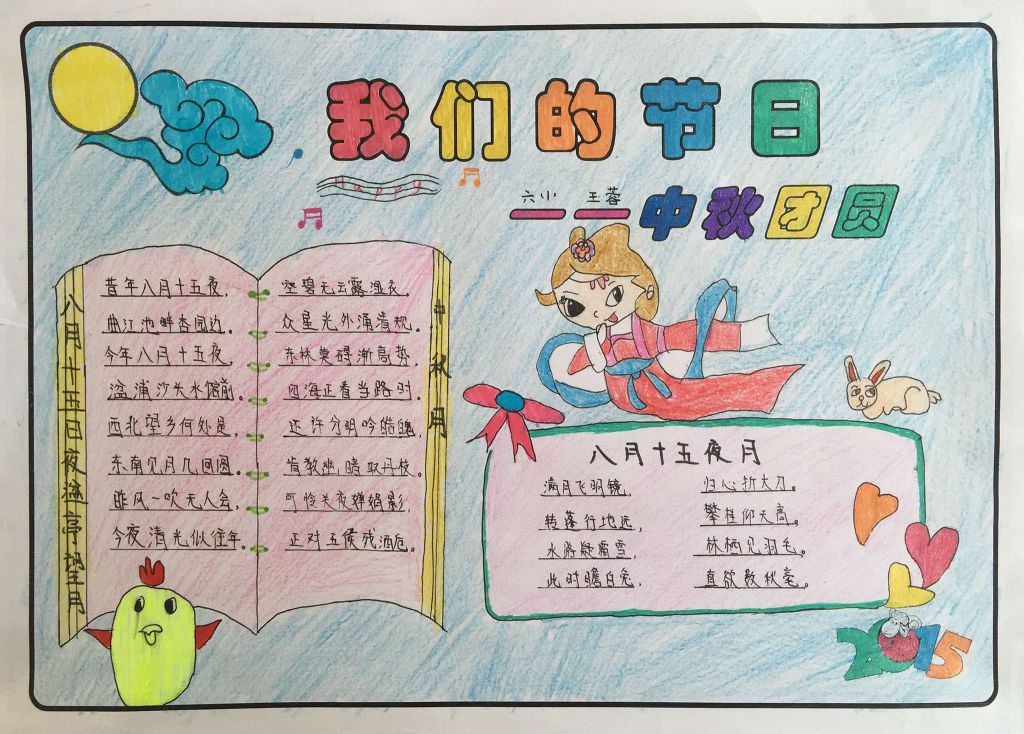 我们的节日
Happy
六小 王蓉 中秋团圆
八月十五日夜湓亭望月
昔年八月十五夜,
曲江池畔杏园边。
今年八月十五夜,
湓浦沙头水馆前。
西北望乡何处是,
东南见月几回圆。
昨风一吹无人会,
今夜清光似往年。
中秋月
空碧无云露湿衣,
众星光外涌清规。
东林莫碍渐高势,
四海正看当路时。
还许分明吟皓魄,
肯教幽暗取丹枝。
可怜关夜婵娟影,
正对五侯残酒卮。
八月十五夜月
满月飞明镜, 归心折大刀。
转蓬行地远, 攀桂仰天高。
水路疑霜雪, 林栖见羽毛。
此时瞻白兔, 直欲数秋毫。
2015